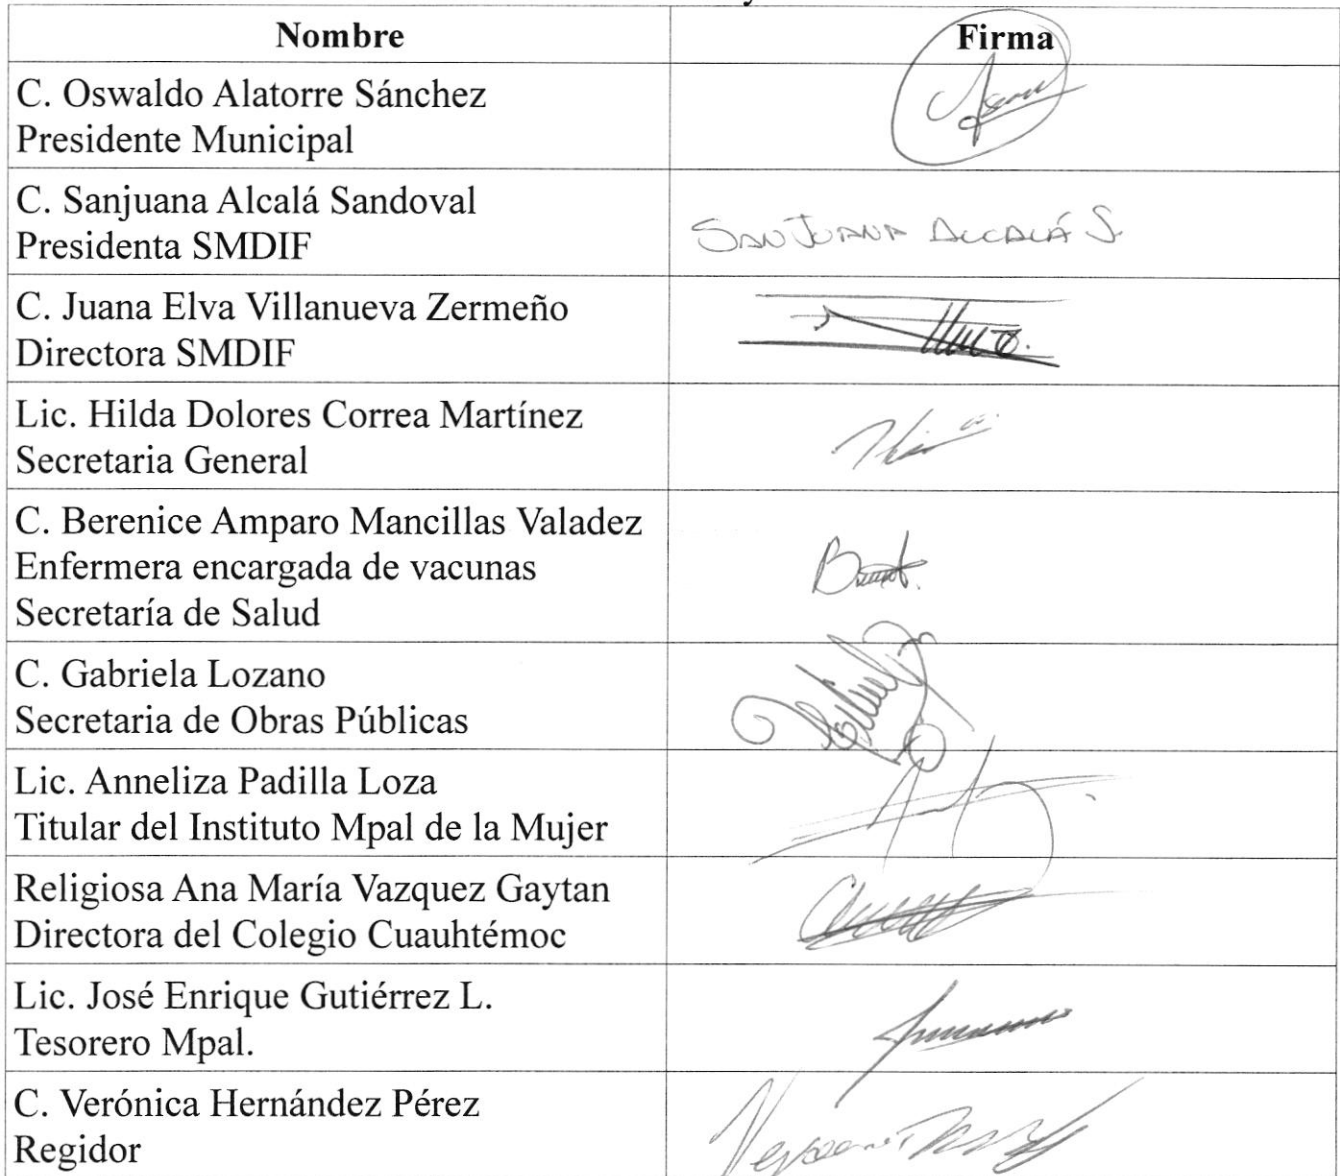 Nombre Firma
C. Oswaldo Alatorre Sánchez
Presidente Municipal
C. Sanjuana Alcalá Sandoval
Presidenta SMDIF
SANJUANA ALCALÁ S.
C. Juana Elva Villanueva Zermeño
Directora SMDIF
Lic. Hilda Dolores Correa Martínez
Secretaria General
C. Berenice Amparo Mancillas Valadez
Enfermera encargada de vacunas
Secretaría de Salud
C. Gabriela Lozano
Secretaria de Obras Públicas
Lic. Anneliza Padilla Loza
Titular del Instituto Mpal de la Mujer
Religiosa Ana María Vazquez Gaytan
Directora del Colegio Cuauhtémoc
Lic. José Enrique Gutiérrez L.
Tesorero Mpal.
C. Verónica Hernández Pérez
Regidor